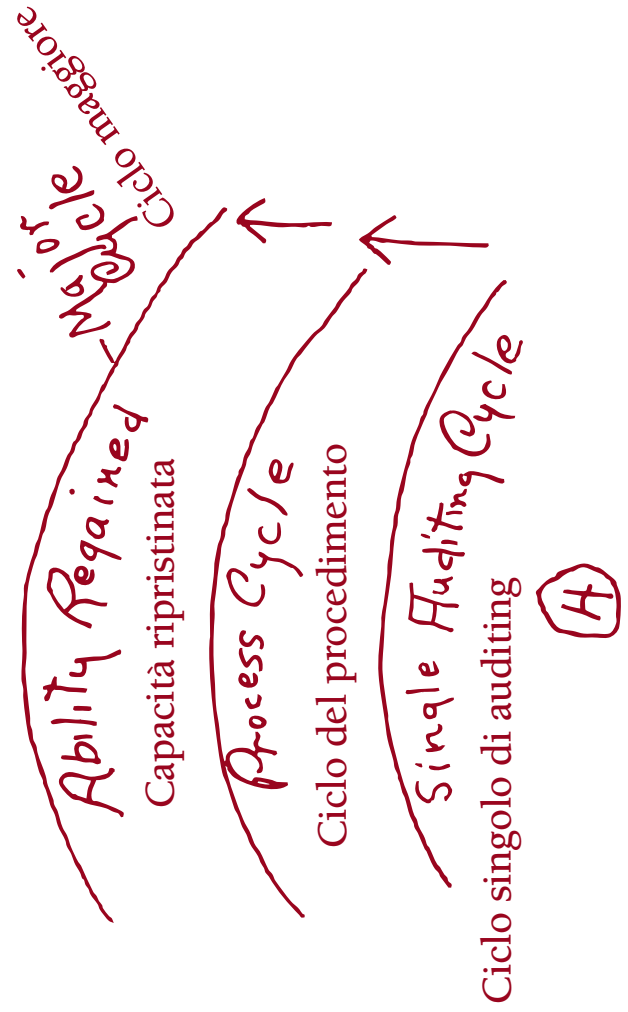 Major
Cycle
Ciclo maggiore
Ability Regained
Capacità ripristinata
Process Cycle
Ciclo del procedimento
Single Auditing Cycle
Ciclo singolo di auditing
A